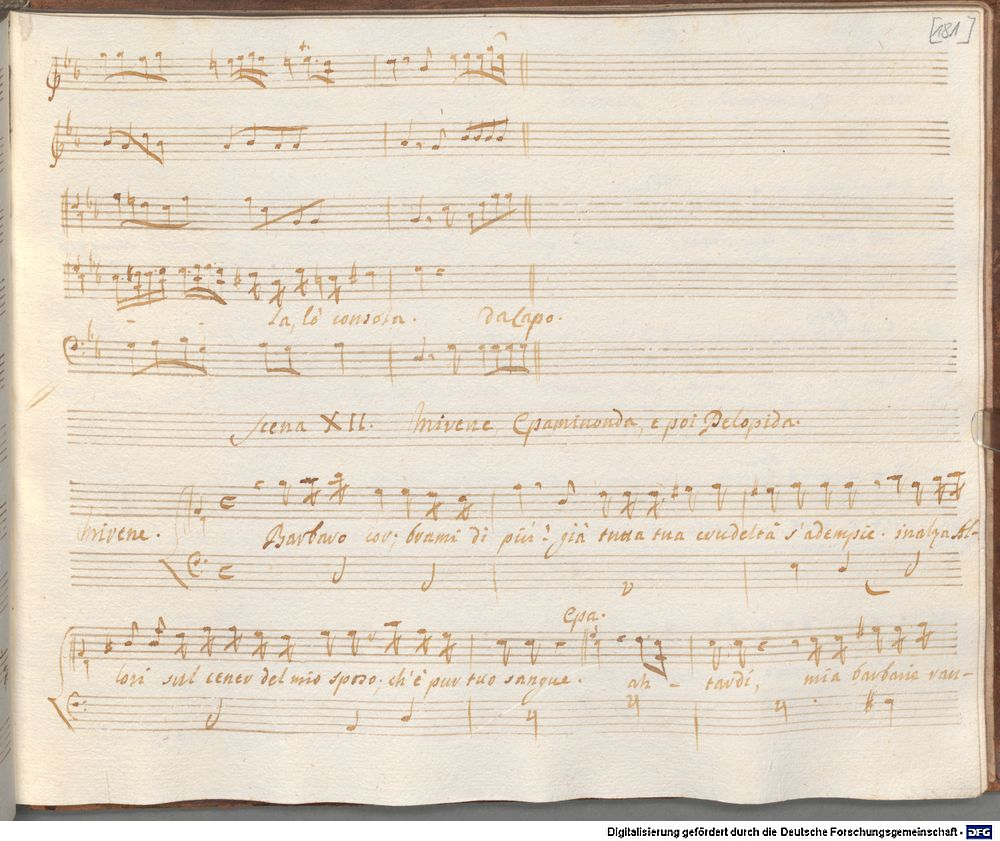 [181]
la, lo consola. Da Capo.
Scena XII. Mirene Epaminonda, e poi Pelopida.
Mirene. Barbaro cor; brami di più? già tutta tua crudeltà s'adempie. inalza Al-
lori sul cener del mio sposo; ch'è pur tuo sangue.
Epa.
ah - tardi, mia barbarie rav-
Digitalisierung gefördert durch die Deutsche Forschungsgemeinschaft - DFG